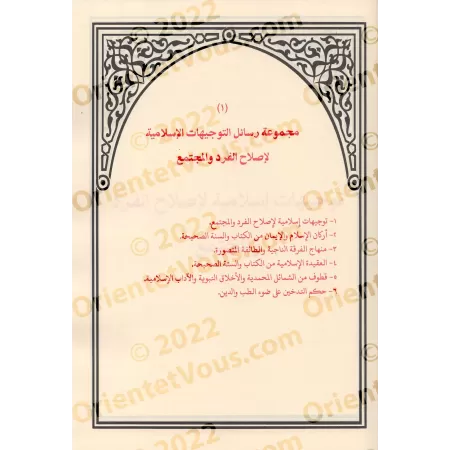 (١)
مجموعة رسائل التوجيهات الإسلامية
لإصلاح الفرد والمجتمع
١- توجيهات إسلامية لإصلاح الفرد والمجتمع.
٢- أركان الإسلام والإيمان من الكتاب والسنة الصحيحة.
٣- منهاج الفرقة الناجية والطائفة المنصورة.
٤- العقيدة الإسلامية من الكتاب والسنة الصحيحة.
٥- قطوف من الشمائل المحمدية والأخلاق النبوية والآداب الإسلامية.
٦- حكم التدخين على ضوء الطب والدين.
© 2022
OrientetVous.com
© 2022
OrientetVous.com
© 2022
OrientetVous.com
© 2022